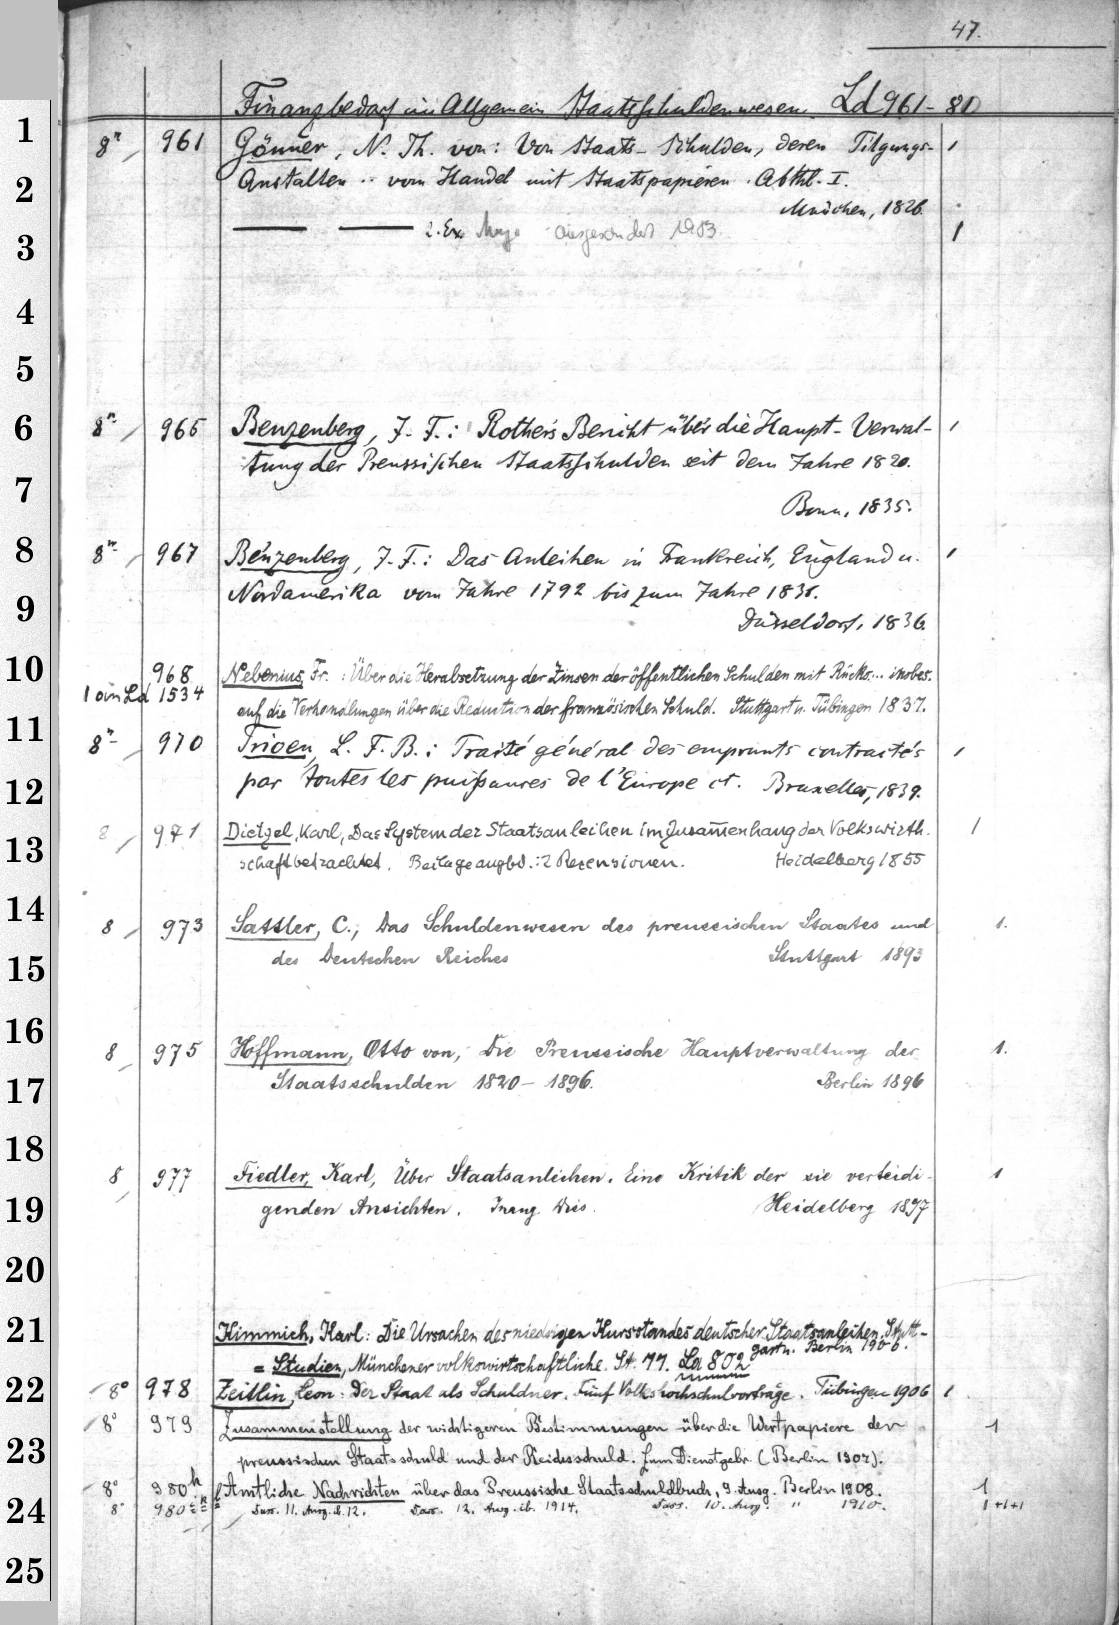 47.
Finanzbedarf im Allgemein Staatsschuldenwesen. Ld 961-80
1
8° 961 Gönner, N. Th. von: Von Staats-Schulden, deren Tilgungs- 1
2
Anstalten .. vom Handel mit Staatspapieren. Abthl. I.
München, 1826.
3
— — 2. Ex. ausgesondert 1
4
5
6
8° 965 Benzenberg, J. F.: Rother's Bericht über die Haupt-Verwal- 1
tung der Preussischen Staatsschulden seit dem Jahre 1820.
7
Bonn, 1835.
8
8° 967 Benzenberg, J. F.: Das Anleihen in Frankreich, England u. 1
9
Nordamerika vom Jahre 1792 bis zum Jahre
Düsseldorf, 1836.
10
968 Nebenius, Fr.: Über die Herabsetzung der Zinsen der öffentlichen Schulden mit Rücks... insbes.
1 in Ld 1534
auf die Verhandlungen über die Reduction der französischen Schuld. Stuttgart u. Tübingen 1837.
11
8° 970 Trioen, L. F. B.: Traité général des emprunts contractés 1
12
par toutes les puissances de l'Europe ct. Bruxelles, 1839.
13
8 971 Dietzel, Karl, Das System der Staatsanleihen im Zusam̄enhang der Volkswirth- 1
schaft betrachtet. Beilage angbd.: 2 Recensionen. Heidelberg 1855
14
8 973 Sattler, C., Das Schuldenwesen des preussischen Staates und 1.
15
des Deutschen Reiches Stuttgart 1893
16
8 975 Hoffmann, Otto von, Die Preussische Hauptverwaltung der 1.
17
Staatsschulden 1820-1896. Berlin 1896
18
8 977 Fiedler, Karl, Über Staatsanleihen. Eine Kritik der sie verteidi- 1
19
genden Ansichten. Inaug. Diss. Heidelberg 1897
20
21
Kimmich, Karl: Die Ursachen des niedrigen Kursstandes deutscher Staatsanleihen. Stutt-
gart u. Berlin 1906.
= Studien, Münchener volkswirtschaftliche. St. 77. Ld 802
22
8° 978 Zeitlin, Leon: Der Staat als Schuldner. Fünf Volkshochschulvorträge. Tübingen 1906 1
8° 979 Zusammenstellung der wichtigeren Bestimmungen über die Wertpapiere der 1
23
preussischen Staatsschuld und der Reichsschuld. Zum Dienstgebr. (Berlin 1907).
8° 980 h Amtliche Nachrichten über das Preussische Staatsschuldbuch, 9. Ausg. Berlin 1908. 1
24
8° 980 Dass. 11. Ausg. ib. 12. Dass. 12. Ausg. ib. 1914. Dass. 10. Ausg. " 1910. 1+1+1
25